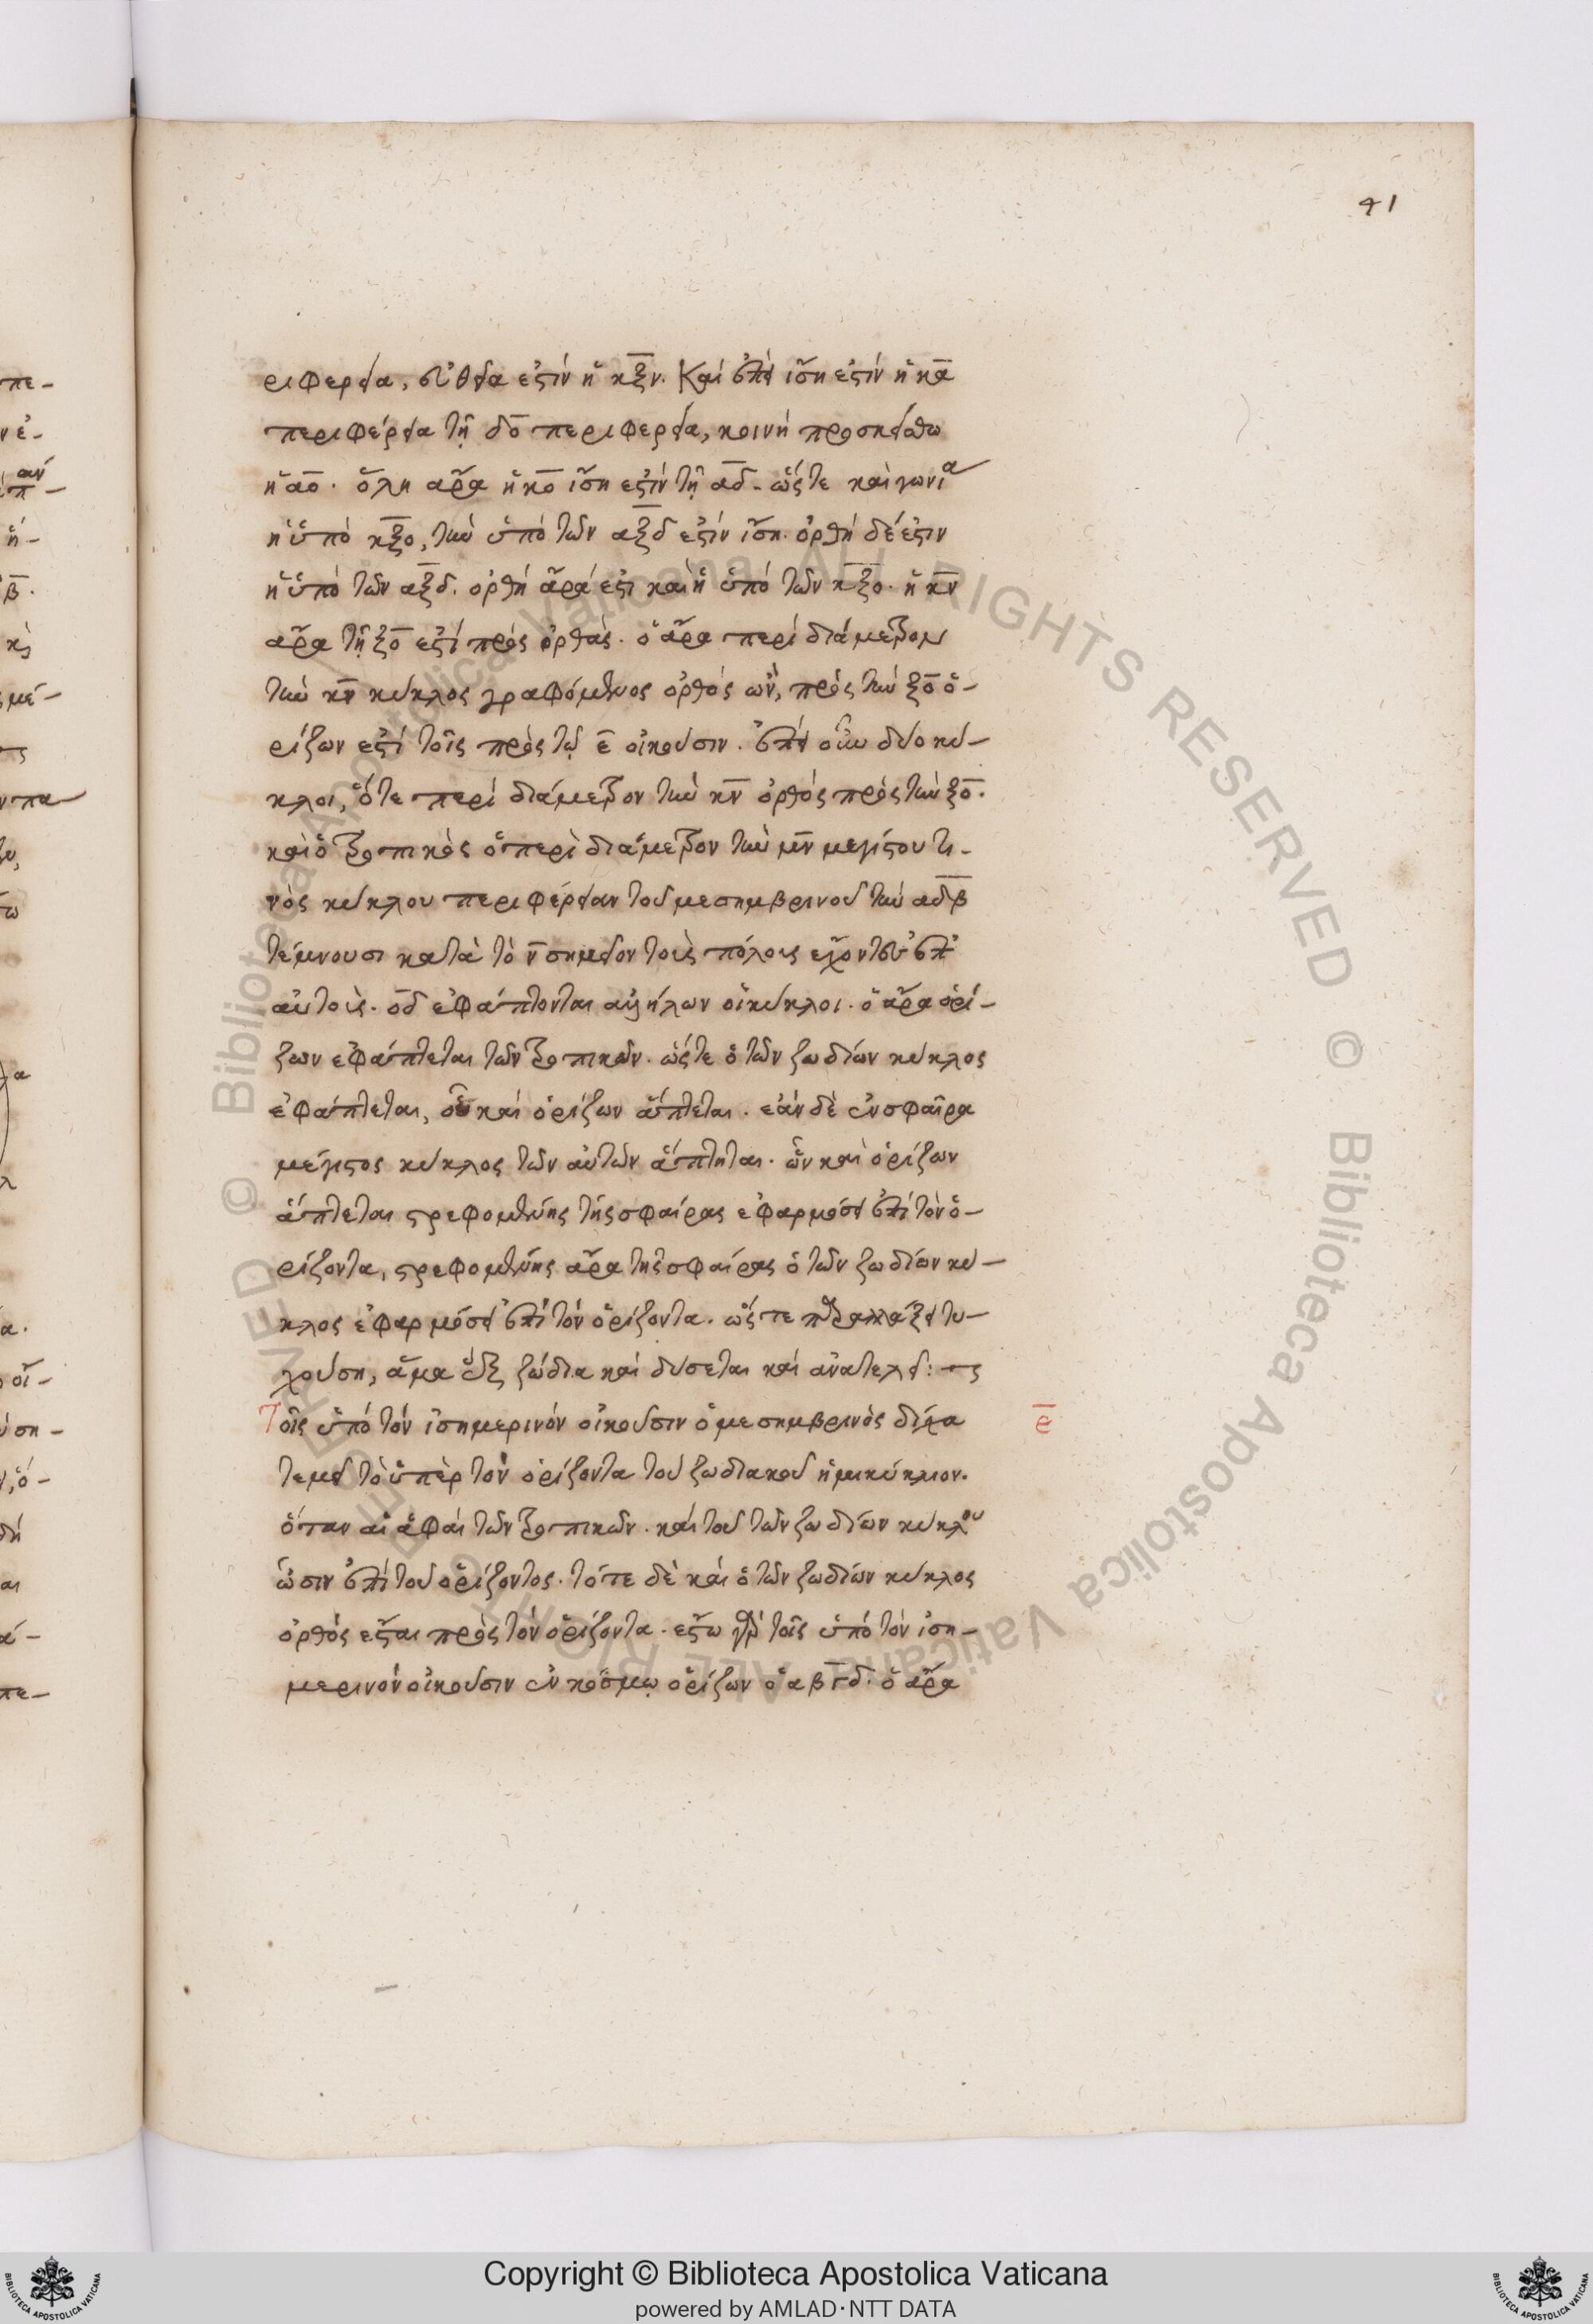 41
ριφερεία, εὐθεῖα ἐστὶν ἡ κξν. Καὶ ἐπεὶ ἴση ἐστὶν ἡ κα
περιφέρεια τῇ δο περιφερεία, κοινὴ προσκείσθω
ἡ αο. ὅλη ἄρα ἡ κο ἴση ἐστὶν τῇ αδ. ὥστε καὶ γωνία
ἡ ὑπὸ κξο, τῇ ὑπὸ τῶν αξδ ἐστὶν ἴση. ὀρθὴ δέ ἐστιν
ἡ ὑπὸ τῶν αξδ. ὀρθὴ ἄρά ἐστι καὶ ἡ ὑπὸ τῶν κξο. ἡ κν
ἄρα τῇ ξο ἐστὶ πρὸς ὀρθάς. ὁ ἄρα περὶ διάμετρον
τὴν κν κύκλος γραφόμενος ὀρθὸς ὢν, πρὸς τὴν ξο ὁ-
ρίζων ἐστὶ τοῖς πρὸς τῷ ε οἰκοῦσιν. ἐπεὶ οὖν δύο κύ-
κλοι, ὅ τε περὶ διάμετρον τὴν κν ὀρθὸς πρὸς τὴν ξο.
καὶ ὁ τροπικὸς ὁ περὶ διάμετρον τὴν μν μεγίστου τι-
νὸς κύκλου περιφέρειαν τοῦ μεσημβρινοῦ τὴν αδβ
τέμνουσι κατὰ τὸ ν σημεῖον τοὺς πόλους ἔχοντος ἐπ'
αὐτοῖς. οδ ἐφάπτονται ἀλλήλων οἱ κύκλοι. ὁ ἄρα ὁρί-
ζων ἐφάπτεται τῶν τροπικῶν. ὥστε ὁ τῶν ζωδίων κύκλος
ἐφάπτεται, οὗ καὶ ὁρίζων ἅπτεται. ἐὰν δὲ ἐν σφαῖρα
μέγιστος κύκλος τῶν αὐτῶν ἅπτηται. ὧν καὶ ὁρίζων
ἅπτεται στρεφομένης τῆς σφαίρας ἐφαρμόσει ἐπὶ τὸν ὁ-
ρίζοντα, στρεφομένης ἄρα τῆς σφαίρας ὁ τῶν ζωδίων κύ-
κλος ἐφαρμόσει ἐπὶ τὸν ὁρίζοντα. ὥστε παραλλάξει τυ-
χούση, ἅμα ἓξ ζώδια καὶ δύσεται καὶ ἀνατελεῖ:
Τοῖς ὑπὸ τὸν ἰσημερινὸν οἰκοῦσιν ὁ μεσημβρινὸς δίχα ε
τεμεῖ τὸ ὑπὲρ τὸν ὁρίζοντα τοῦ ζωδιακοῦ ἡμικύκλιον.
ὅταν αἱ ἁφαὶ τῶν τροπικῶν. καὶ τοῦ τῶν ζωδίων κύκλου
ὦσιν ἐπὶ τοῦ ὁρίζοντος. τότε δὲ καὶ ὁ τῶν ζωδίων κύκλος
ὀρθὸς ἔσται πρὸς τὸν ὁρίζοντα. ἔστω γὰρ τοῖς ὑπὸ τὸν ἰση-
μερινὸν οἰκοῦσιν ἐν κόσμῳ ὁρίζων ὁ αβγδ. ὁ ἄρα
Copyright © Biblioteca Apostolica Vaticana
powered by AMLAD·NTT DATA